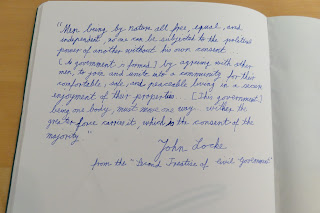 "Men being by nature all free, equal, and
independent, no one can be subjected to the political
power of another without his own consent
( [A government is formed ] by agreeing with other
men, to join and unite into a community for their
comfortable, safe, and peaceable living in a secure
enjoyment of their properties [This government]
being one body, must move one way whither the
greater force carries it, which is the consent of the
majority."
John Locke
from the "Second Treatise of Civil Government"